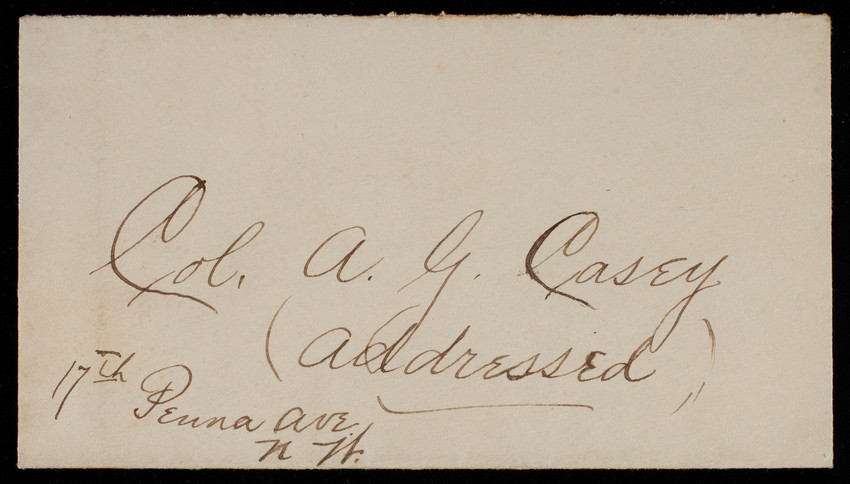 Col. A. G. Casey
(Addressed)
17th
Penna Ave.
N W.